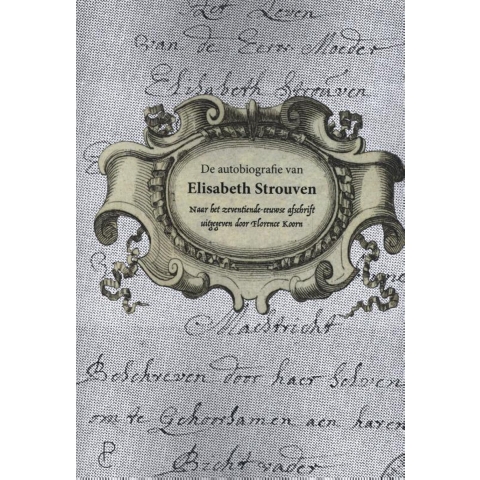 Het Leven
van de Eerw Moeder
Elisabeth Strouven
De autobiografie van
Elisabeth Strouven
Naar het zeventiende-eeuwse afschrift
uitgegeven door Florence Koorn
Mastricht
Beschreven door haer Selven
om te Gehoorsamen aen haren
Bicht vader